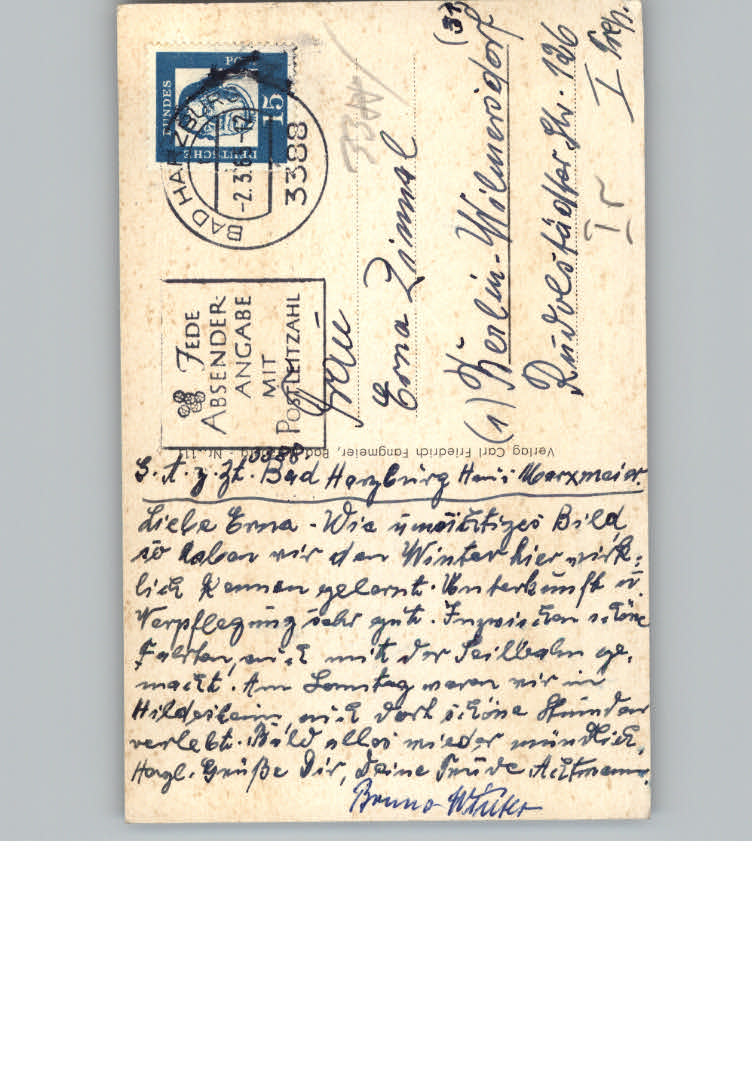 DEUTSCHE
BUNDES
POST
15
BAD HARZBURG
-2.3.6
3388
JEDE
ABSENDER-
ANGABE
MIT
POSTLEITZAHL
Frau
Erna
(1) Berlin-Wilmersdorf
(31)
Rudolstädter Str. 126
I
Verlag Carl Friedrich Fangmeier, Bad
3388.
z. Zt. Bad Harzburg Haus Marxmeier.
Liebe Erna - Wie umseitiges Bild,
so haben wir den Winter hier wirk-
lich kennen gelernt. Unterkunft u.
Verpflegung sehr gut. Inzwischen schöne
Fahrten, auch mit der Seilbahn ge-
macht. Am Sonntag waren wir in
Hildesheim, auch dort schöne Stunden
verlebt. Bald alles wieder mündlich.
Herzl. Grüße Dir, Deine
Bruno